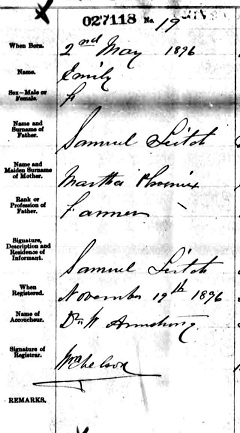 027118 No. 19
When Born. 2nd May 1896
Name. Emily
Sex—Male or Female. F
Name and Surname of Father. Samuel
Name and Maiden Surname of Mother. Martha
Rank or Profession of Father. Farmer
Signature, Description and Residence of Informant. Samuel
When Registered. November 19th 1896
Name of Accoucheur. Dr. W Armstrong
Signature of Registrar.
REMARKS.